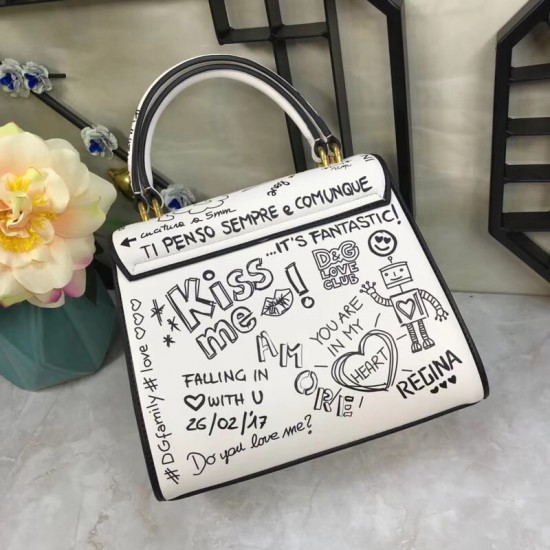 ← cucitura a 5mm
TI PENSO SEMPRE e COMUNQUE
...IT'S FANTASTIC!
Kiss
me !
D&G
LOVE
CLUB
YOU ARE
IN MY
HEART
AM
OR!!
RÈGINA
FALLING IN
♡ WITH U
26/02/'17
Do you love me?
#DGfamily #love ♡♡♡